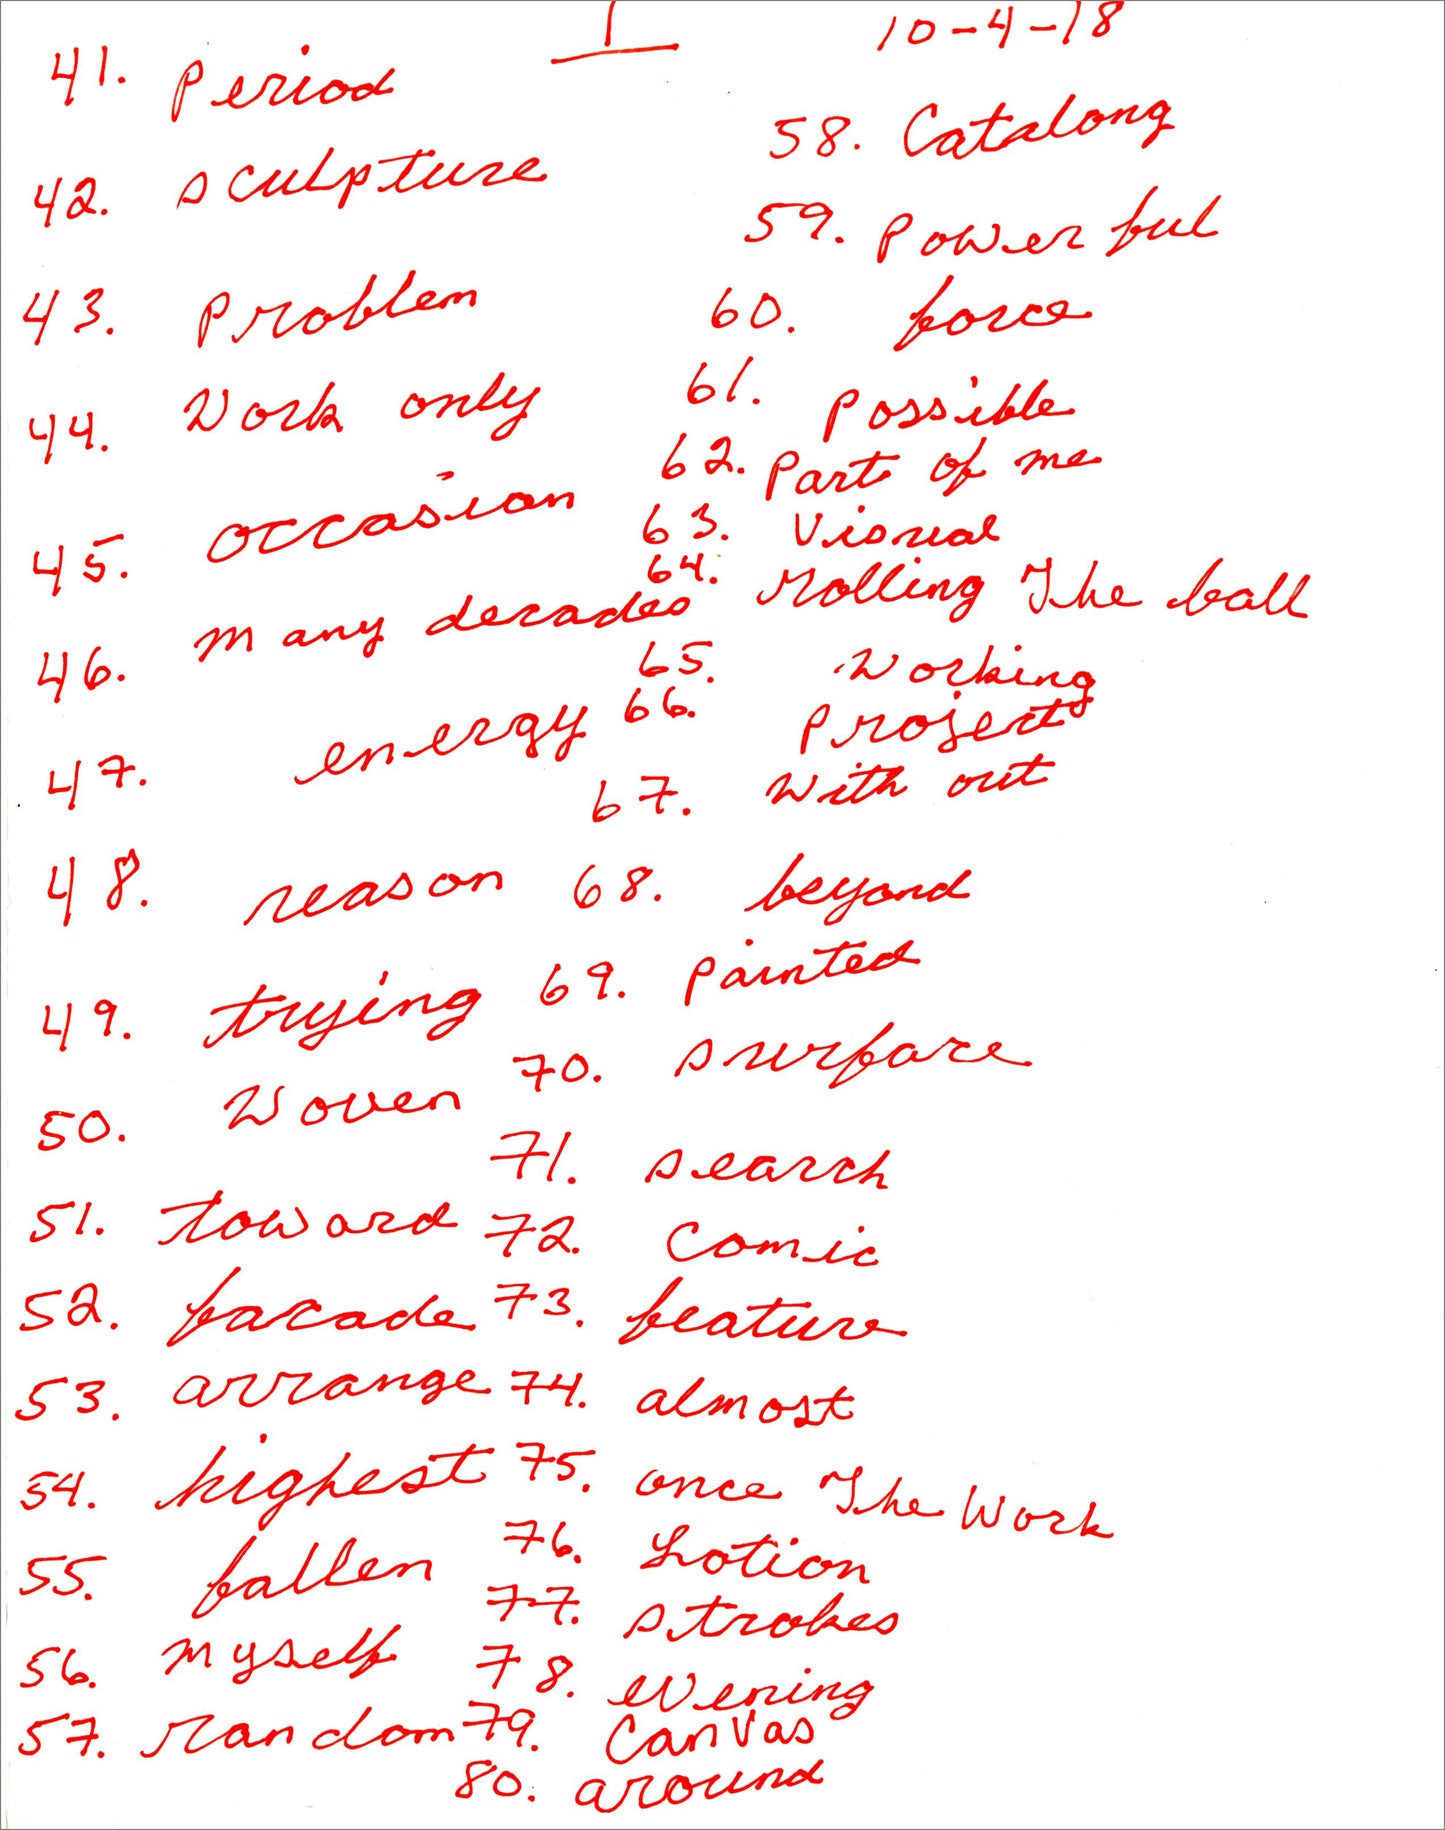 1
10-4-18
41. Period
42. sculpture
43. Problem
44. Work only
45. occasion
46. many decades
47. energy
48. reason
49. trying
50. Woven
51. toward
52. facade
53. arrange
54. highest
55. fallen
56. myself
57. random
58. Catalong
59. Power ful
60. force
61. Possible
62. Part of me
63. Visual
64. rolling The ball
65. Working
66. Project
67. With out
68. beyond
69. Painted
70. surface
71. search
72. Comic
73. feature
74. almost
75. once The Work
76. Lotion
77. strokes
78. evening
79. Canvas
80. around